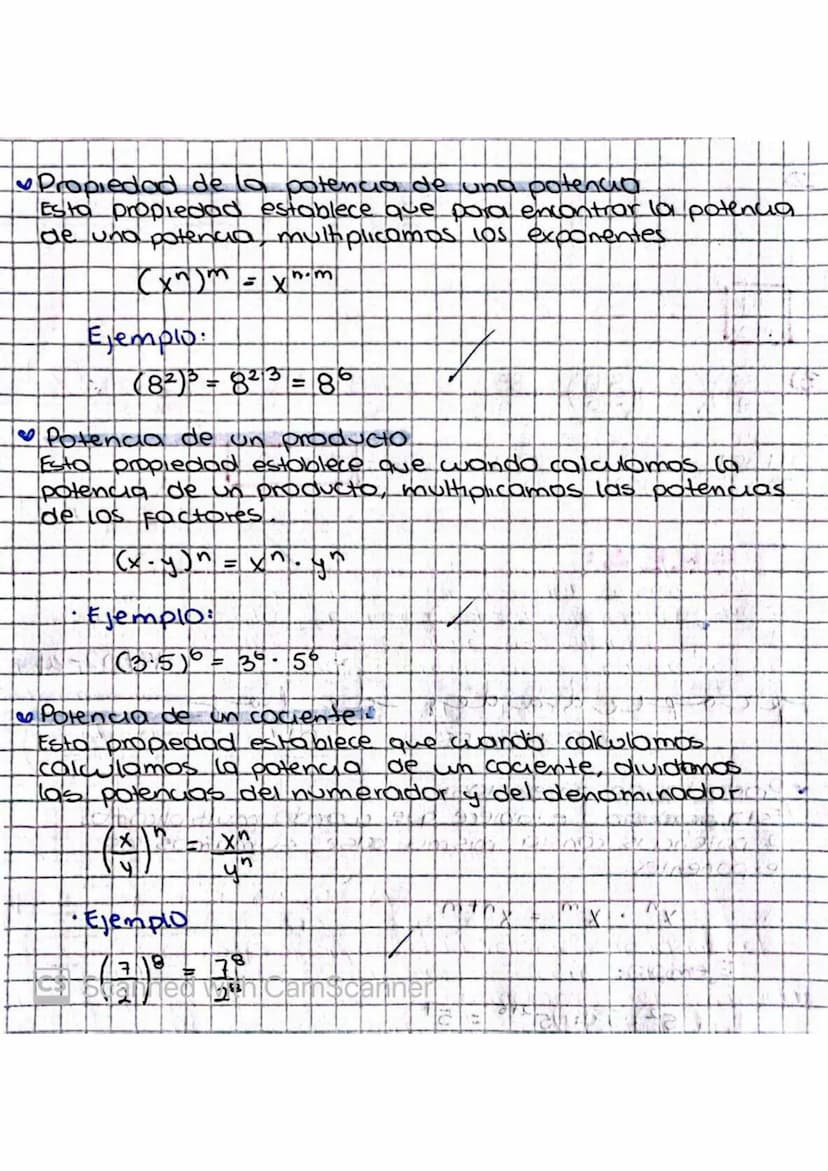 Propiedad de la potencia de una potencia
Esta propiedad establece que para encontrar la potencia
de una potencia, multiplicamos los exponentes
(xⁿ)ᵐ = xⁿ·ᵐ
Ejemplo:
(8²)³ = 8²·³ = 8⁶
Potencia de un producto
Esta propiedad establece que cuando calculamos la
potencia de un producto, multiplicamos las potencias
de los factores.
(x·y)ⁿ = xⁿ · yⁿ
· Ejemplo:
(3·5)⁶ = 3⁶ · 5⁶
Potencia de un cociente
Esta propiedad establece que cuando calculamos
calculamos la potencia de un cociente, dividimos
las potencias del numerador y del denominador
(x/y)ⁿ = xⁿ/yⁿ
· Ejemplo
(7/2)⁸ = 7⁸/2⁸
CS Scanned with CamScanner